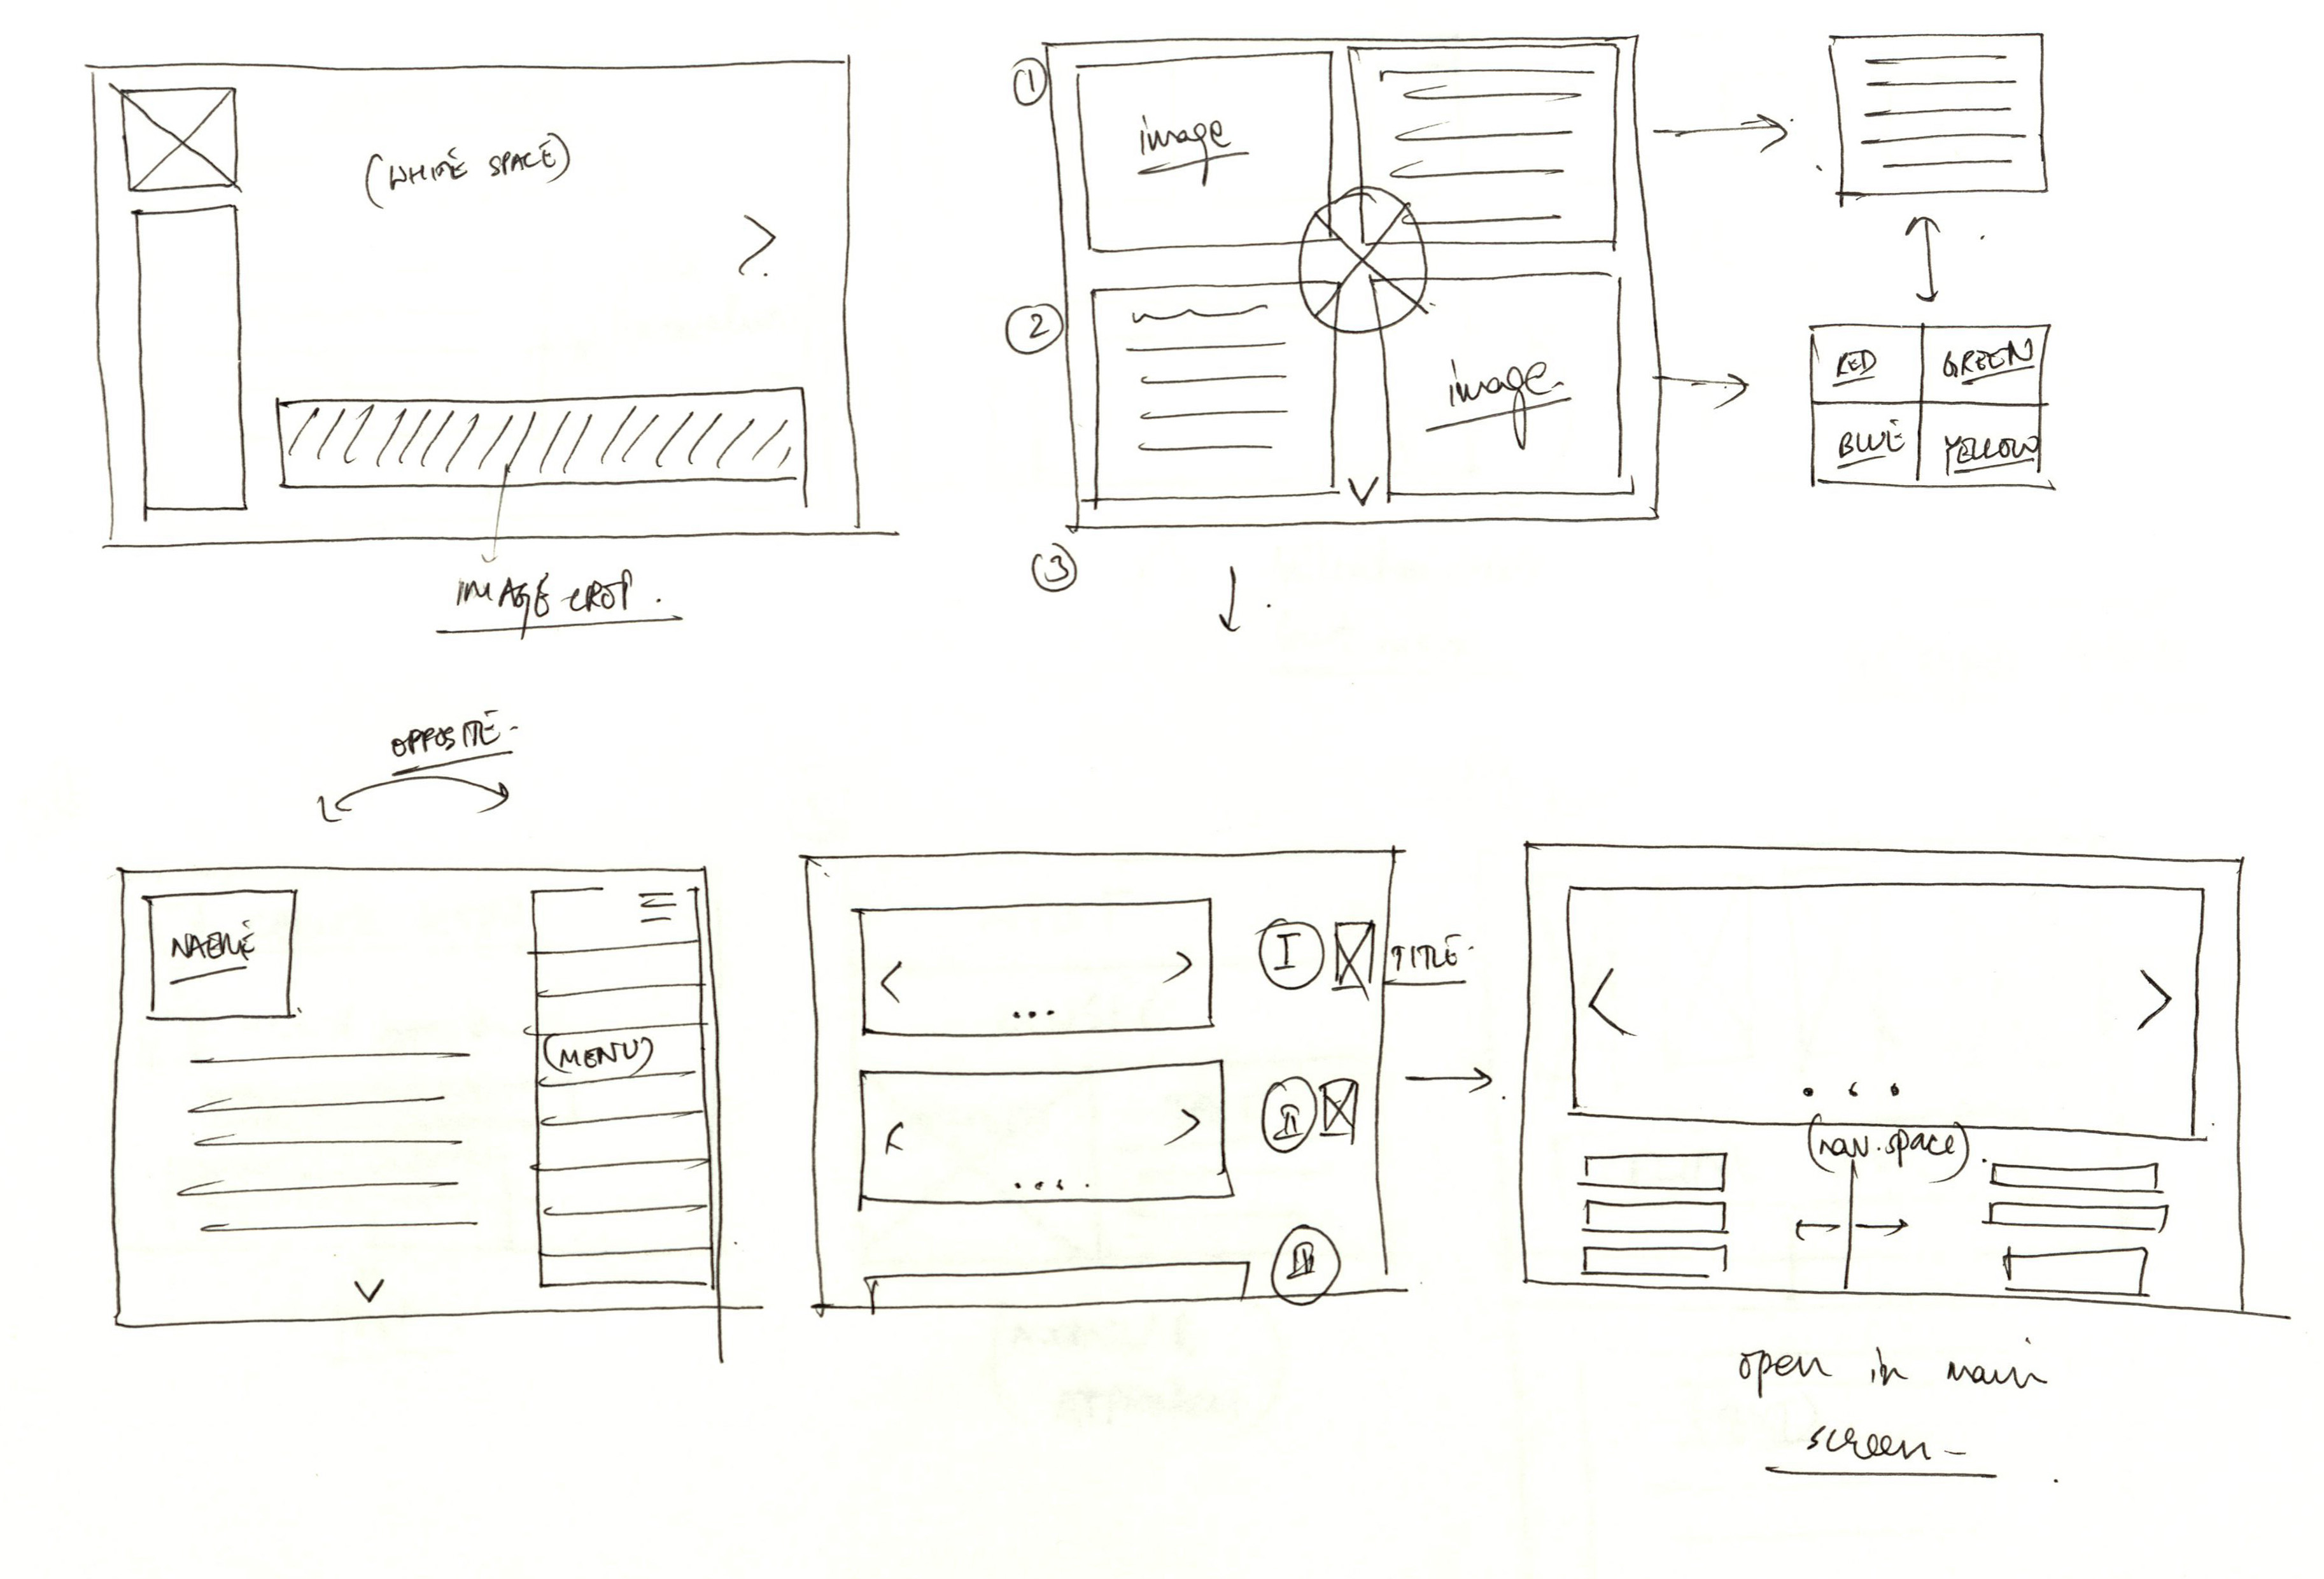 (WHITE SPACE)
IMAGE CROP.
1
image
2
image.
3
RED
GREEN
BLUE
YELLOW
OPPOSITE-
(MENU)
I
TITLE-
II
III
(nav. space).
open in main
screen-